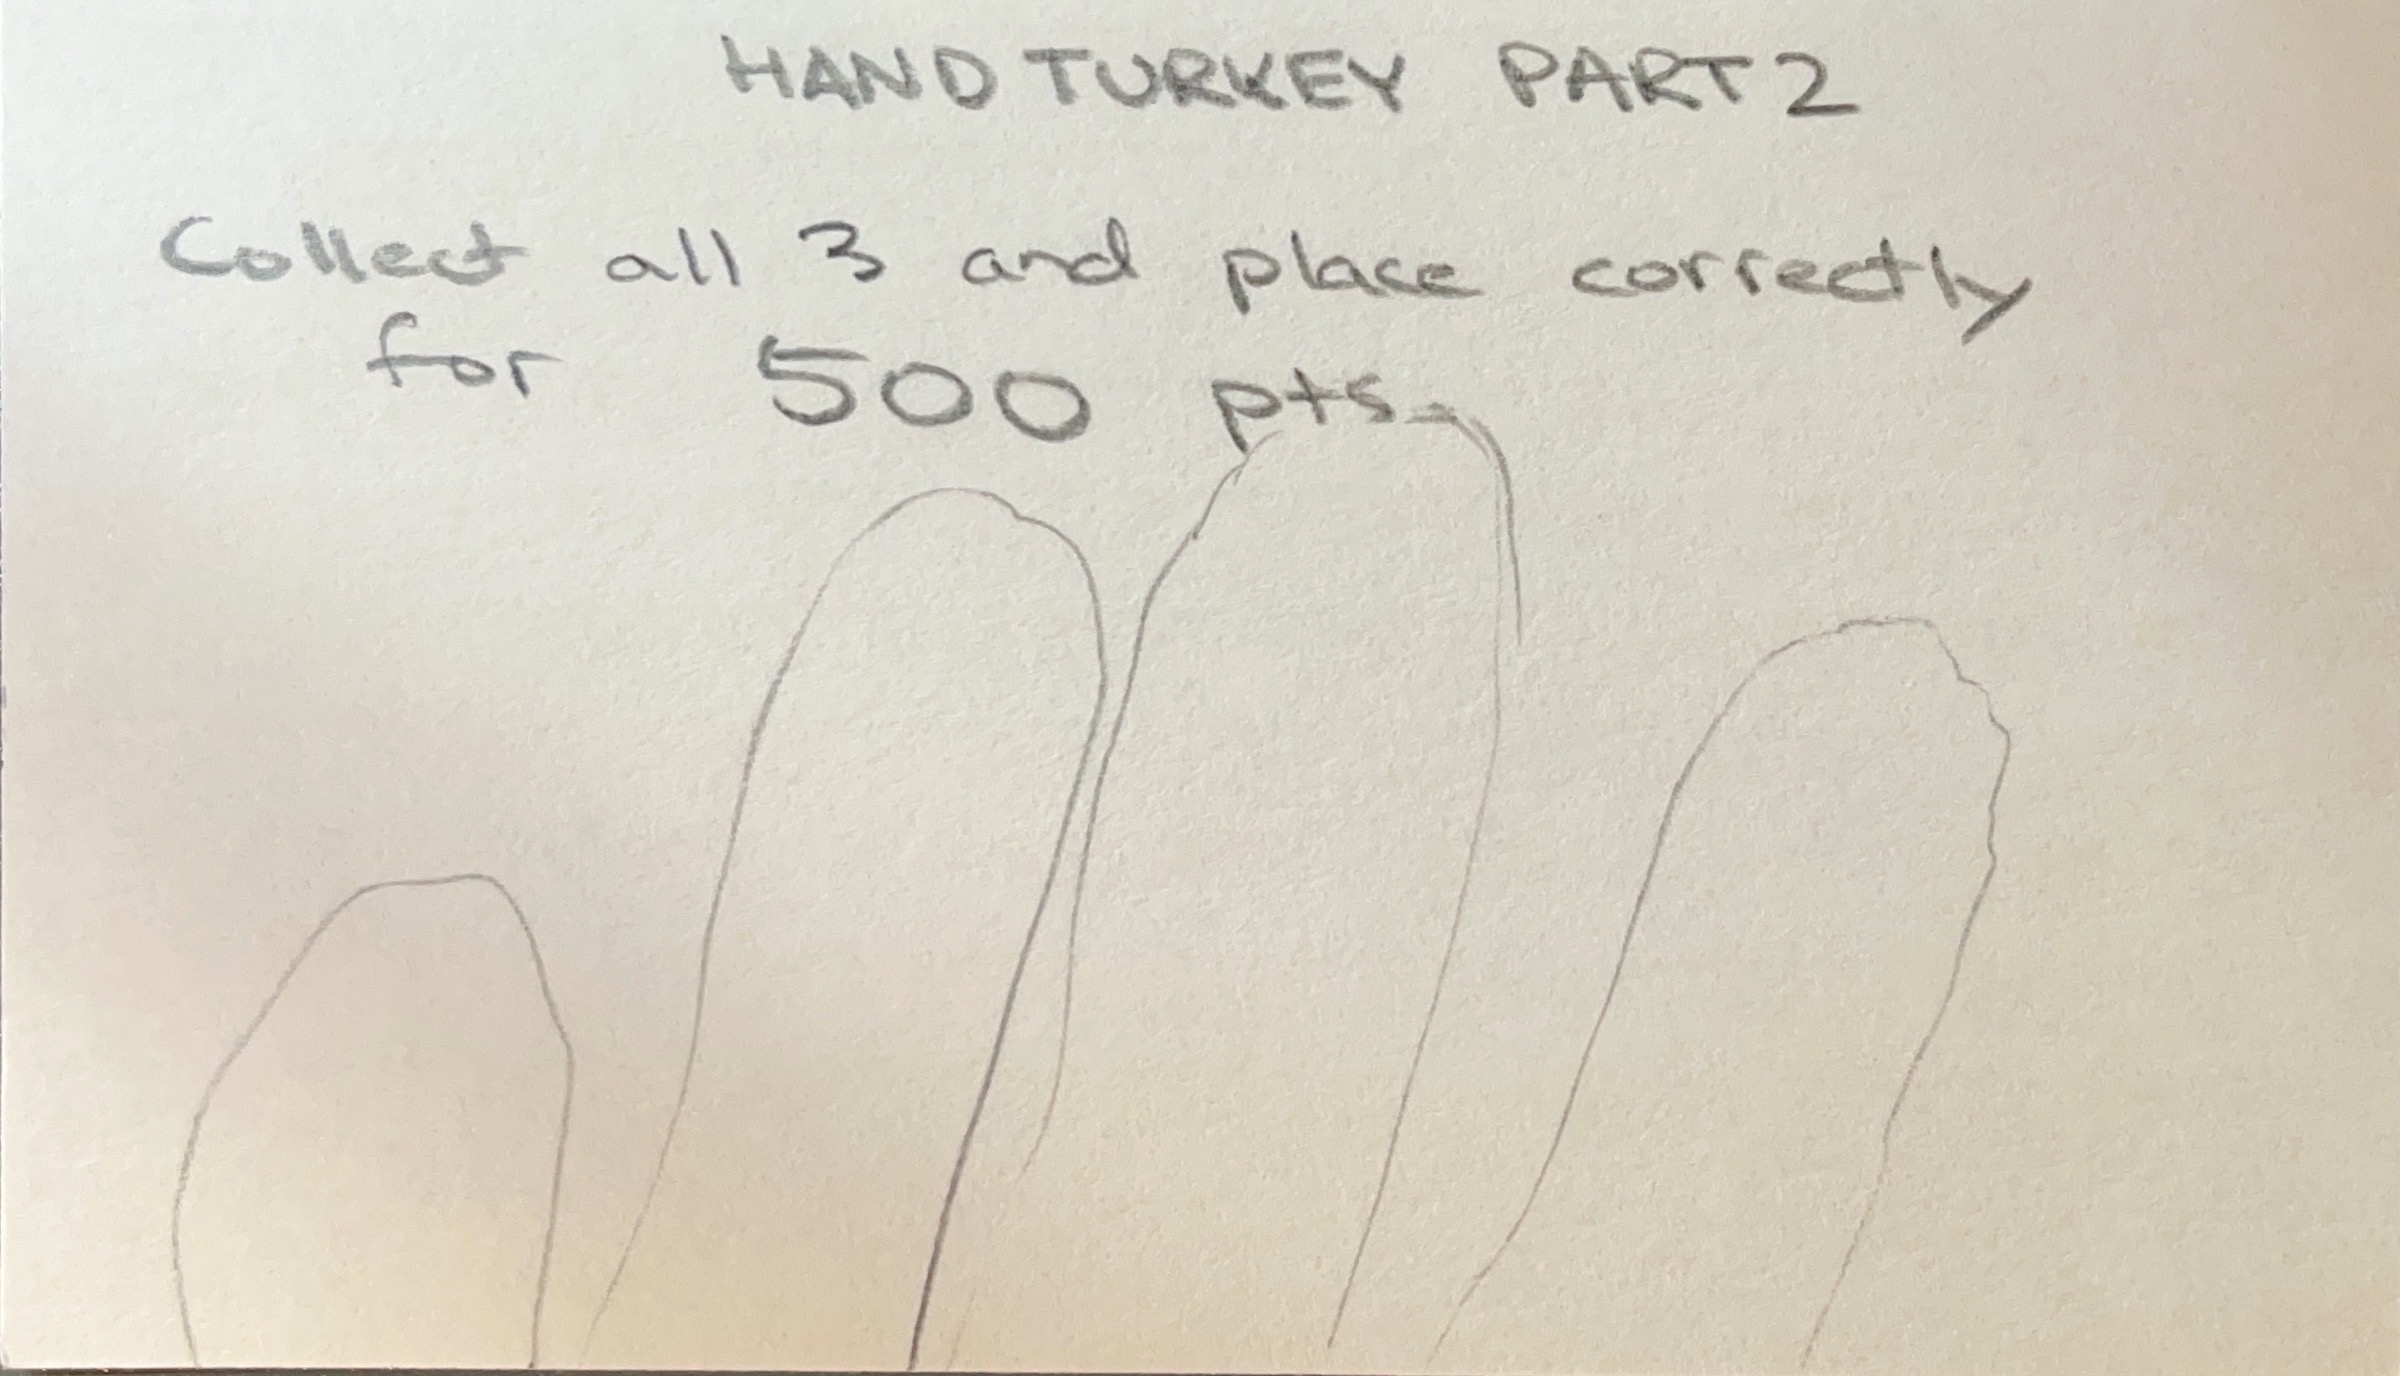 HAND TURKEY PART 2
Collect all 3 and place correctly
for 500 pts.